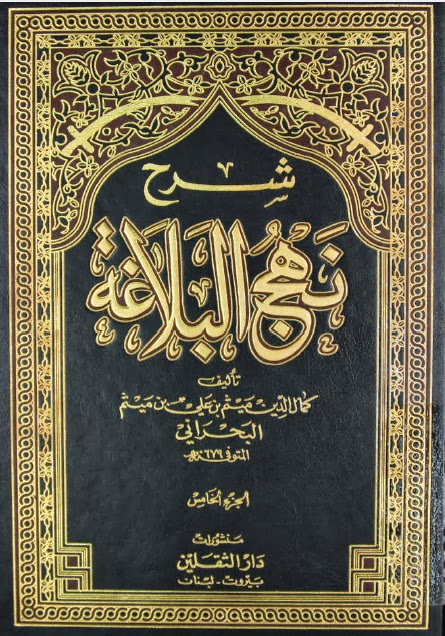 شرح
نَهْجُ البَلَاغَة
تأليف
كمال الدين ميثم بن علي بن ميثم
البحراني
المتوفى ٦٧٩ هـ
الجزء الخامس
منشورات
دار الثقلين
بيروت - لبنان